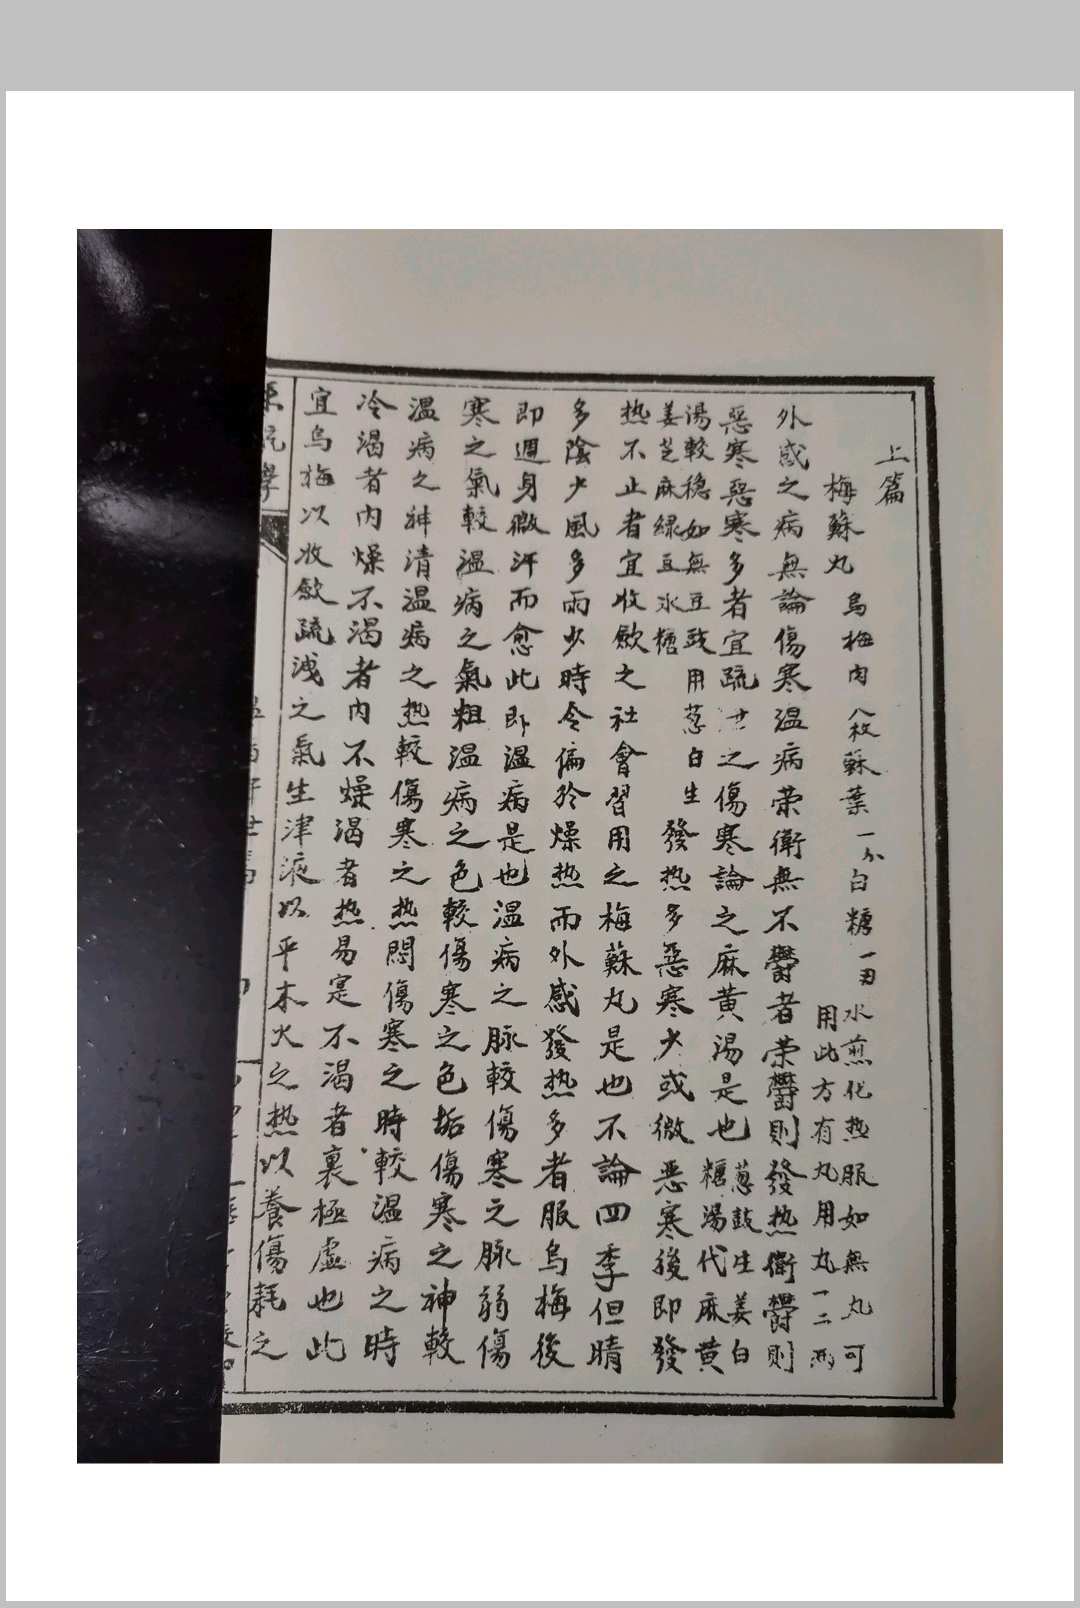 上篇
梅蘇丸　烏梅肉八枚蘇葉一分白糖一刄水煎化热服如無丸可
用此方有丸用丸一二兩
外感之病無論傷寒温病荣衛無不鬱者荣鬱則發热衛鬱則
惡寒惡寒多者宜疏泄之傷寒論之麻黄湯是也葱豉生姜白
糖湯代麻黄
湯較穏如無豆豉用葱白生
姜芝麻緑豆氷糖
發热多惡寒少或微恶寒後即發
热不止者宜收歛之社會習用之梅蘇丸是也不論四季但晴
多陰少風多雨少時令偏於燥热而外感發热多者服烏梅後
即週身微汗而愈此即温病是也温病之脉較傷寒之脉弱傷
寒之氣較温病之氣粗温病之色較傷寒之色垢傷寒之神較
温病之神清温病之热較傷寒之热悶傷寒之時較温病之時
冷渴者内燥不渴者内不燥渴者热易寔不渴者裏極虚也此
宜烏梅以收歛疏洩之氣生津液以平木火之热以養傷耗之